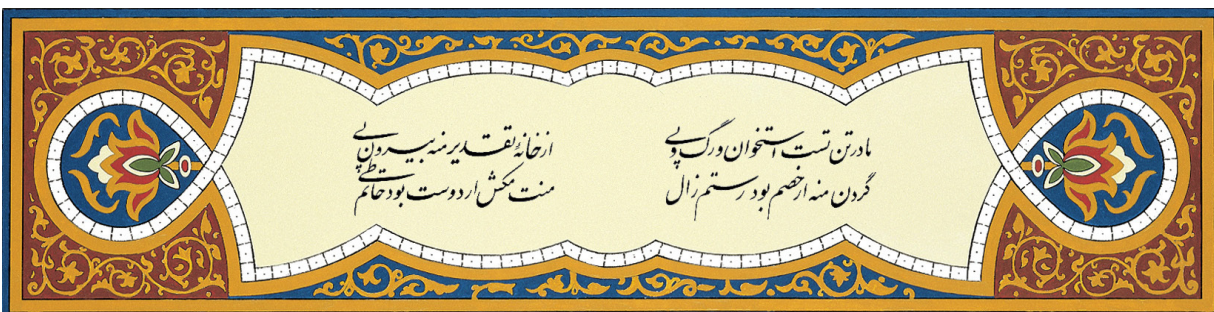 تا در تن تست استخوان و رگ و پی از خانهٔ تقدیر منه بیرون پی
گردن منه ار خصم بود رستم زال منت مکش ار دوست بود حاتم طی